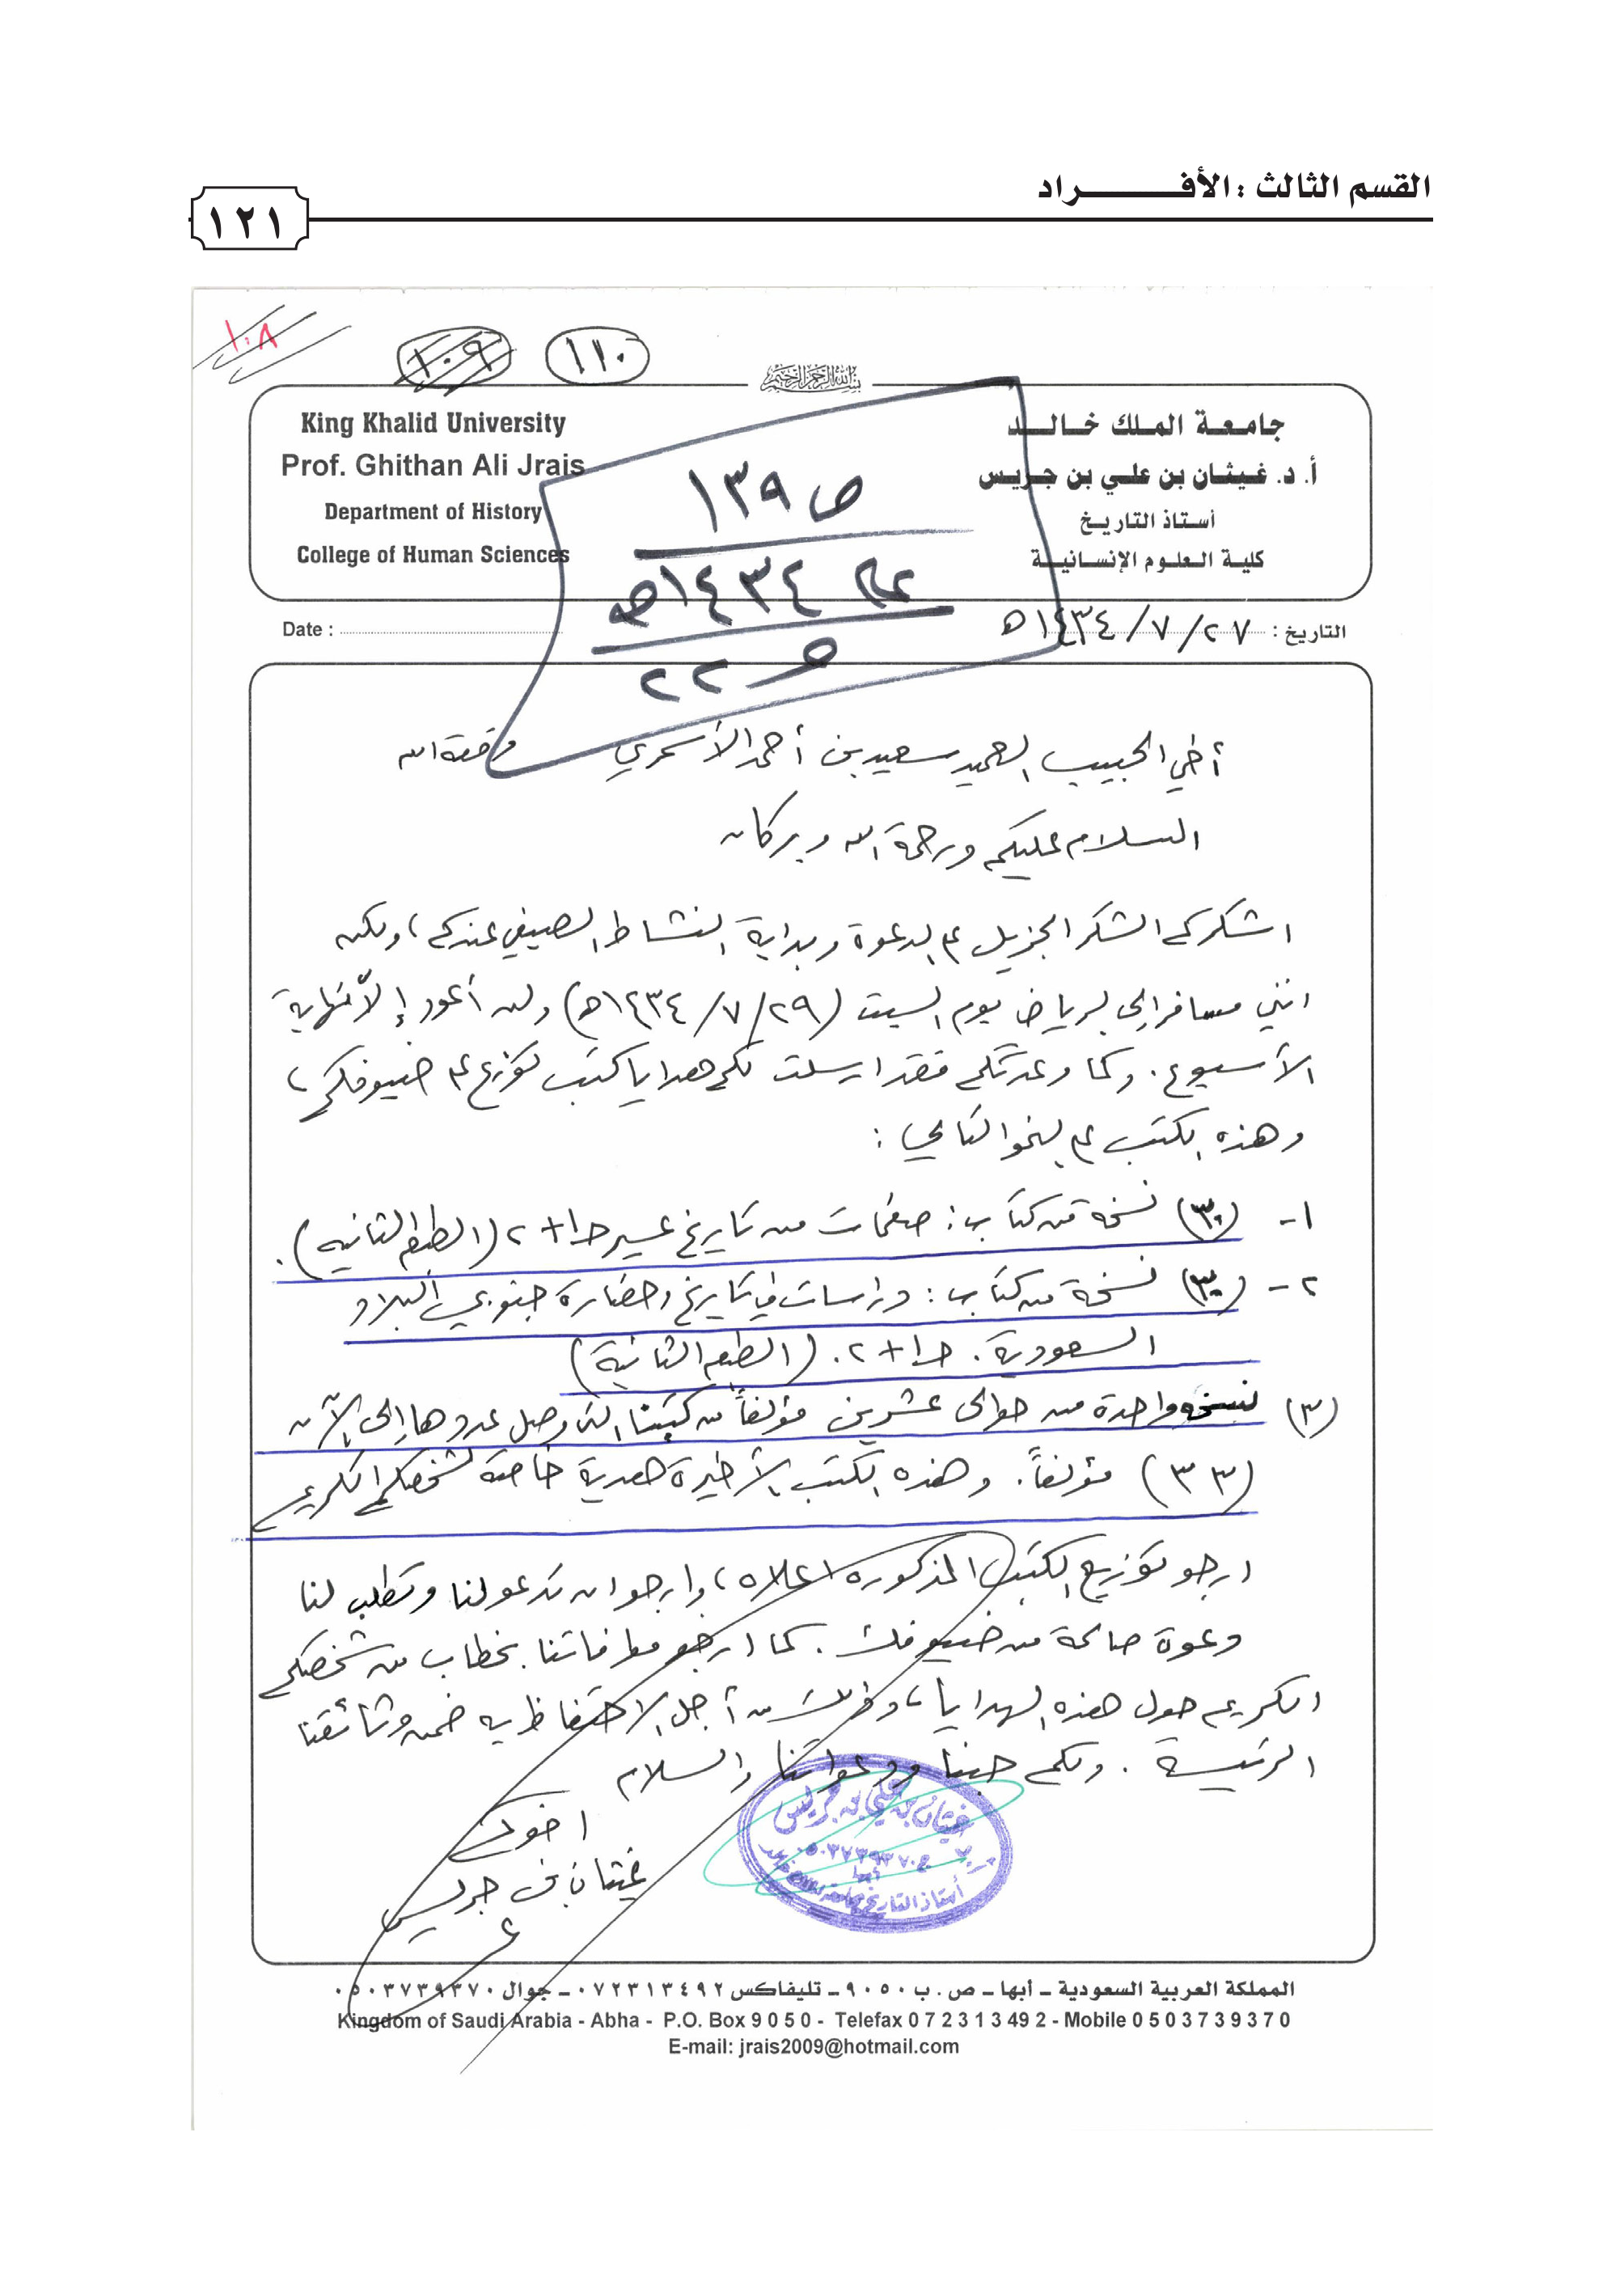 القسم الثالث : الأفـــــراد
١٢١
١٠٨
١٠٩
١١٠
بسم الله الرحمن الرحيم
King Khalid University
Prof. Ghithan Ali Jrais
Department of History
College of Human Sciences
جامعة الملك خالد
أ. د. غيثان بن علي بن جريس
أستاذ التاريخ
كلية العلوم الإنسانية
ص ١٣٩
١٤٣٤هـ
٢٢
Date :
التاريخ : ٢٧ / ٧ / ١٤٣٤ ه
أخي الحبيب العميد سعيد بن أحمد الأسمري وفقه الله
السلام عليكم ورحمة الله وبركاته
اشكركم الشكر الجزيل على الدعوة وبداية النشاط الصيفي عندكم ، ولكن
انني مسافر إلى الرياض يوم السبت (٢٩ / ٧ / ١٤٣٤ه) ولن أعود إلا نهاية
الأسبوع . وكما وعدتكم فقد ارسلت لكم هدايا كتب توزع على ضيوفكم ،
وهذه الكتب على النحو التالي :
١- (٣٠) نسخة من كتاب : صفحات من تاريخ عسير ج١ + ٢ (الطبعة الثانية) .
٢- (٣٠) نسخة من كتاب : دراسات في تاريخ وحضارة جنوبي البلاد
السعودية . ج١ + ٢ . (الطبعة الثانية)
(٣) نسخه واحدة من حوالى عشرين مؤلفاً من كتبنا التي وصل عددها إلى الآن
(٣٣) مؤلفاً . وهذه الكتب الأخيرة هدية خاصة لشخصكم الكريم
ارجو توزيع الكتب المذكوره اعلاه ، وارجو ان تدعو لنا وتطلب لنا
دعوة صالحة من ضيوفك . كما ارجو موافاتنا بخطاب من شخصكم
الكريم حول هذه الهدايا ، وذلك من أجل الاحتفاظ به ضمن وثائقنا
الرئيسة . ولكم حبنا ودعواتنا والسلام
اخوك
غيثان بن جريس
غيثان بن علي بن جريس
ج ٠٥٠٣٧٣٩٣٧٠
أبها
أستاذ التاريخ
المملكة العربية السعودية – أبها – ص . ب ٩٠٥٠ – تليفاكس ٠٧٢٣١٣٤٩٢ – جوال ٠٥٠٣٧٣٩٣٧٠
Kingdom of Saudi Arabia - Abha - P.O. Box 9 0 5 0 - Telefax 0 7 2 3 1 3 49 2 - Mobile 0 5 0 3 7 3 9 3 7 0
E-mail: jrais2009@hotmail.com